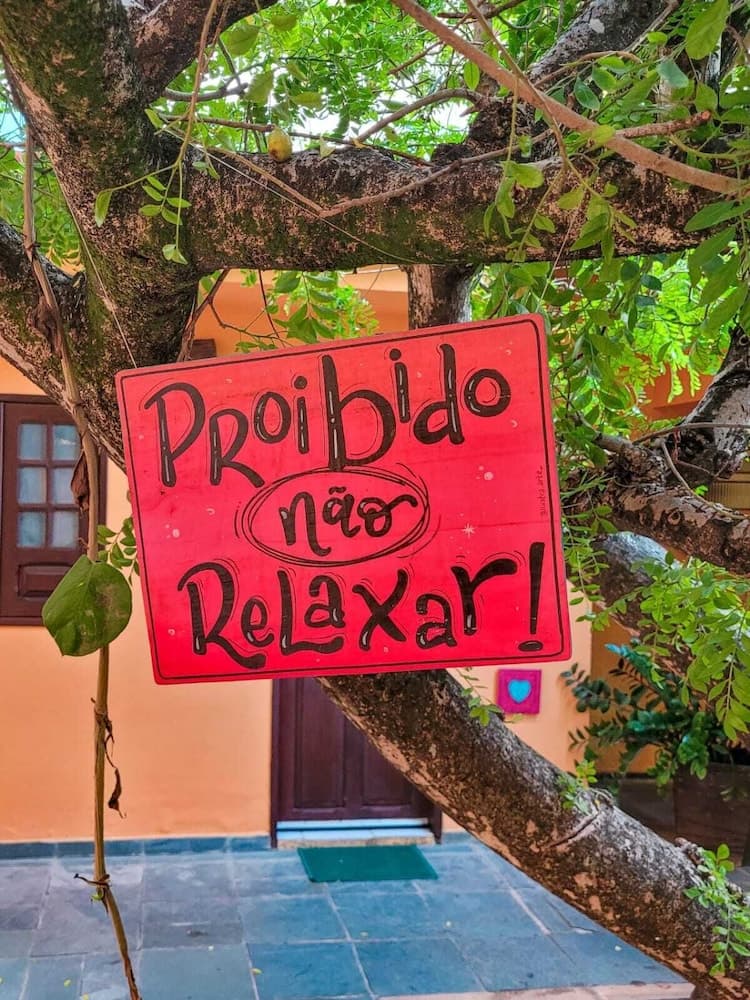 Proibido
não
Relaxar!